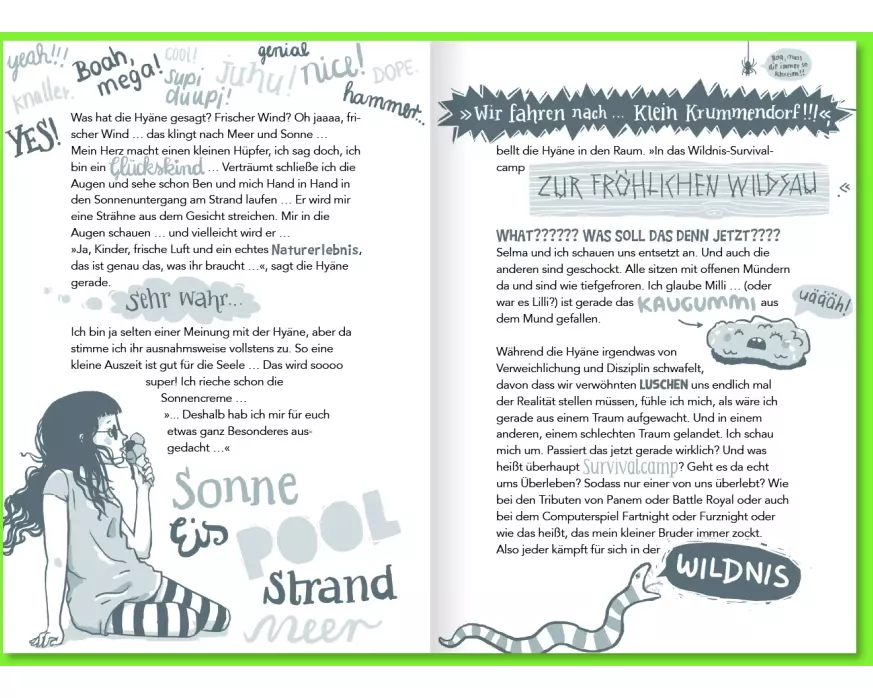 yeah!!!
Boah,
mega!
cool!
supi
duupi!
genial
Juhu!
nice!
DOPE.
hammer...
knaller.
YES!
Was hat die Hyäne gesagt? Frischer Wind? Oh jaaaa, fri-
scher Wind … das klingt nach Meer und Sonne …
Mein Herz macht einen kleinen Hüpfer, ich sag doch, ich
bin ein Glückskind … Verträumt schließe ich die
Augen und sehe schon Ben und mich Hand in Hand in
den Sonnenuntergang am Strand laufen … Er wird mir
eine Strähne aus dem Gesicht streichen. Mir in die
Augen schauen … und vielleicht wird er …
»Ja, Kinder, frische Luft und ein echtes Naturerlebnis,
das ist genau das, was ihr braucht …«, sagt die Hyäne
gerade.
Sehr wahr...
Ich bin ja selten einer Meinung mit der Hyäne, aber da
stimme ich ihr ausnahmsweise vollstens zu. So eine
kleine Auszeit ist gut für die Seele … Das wird soooo
super! Ich rieche schon die
Sonnencreme …
»... Deshalb hab ich mir für euch
etwas ganz Besonderes aus-
gedacht …«
Sonne
Eis
POOL
Strand
Meer
»Wir fahren nach ... Klein Krummendorf!!!«,
bellt die Hyäne in den Raum. »In das Wildnis-Survival-
camp ZUR FRÖHLICHEN WILDSAU.«
WHAT?????? WAS SOLL DAS DENN JETZT????
Selma und ich schauen uns entsetzt an. Und auch die
anderen sind geschockt. Alle sitzen mit offenen Mündern
da und sind wie tiefgefroren. Ich glaube Milli … (oder
war es Lilli?) ist gerade das KAUGUMMI aus
dem Mund gefallen.
uäääh!
Während die Hyäne irgendwas von
Verweichlichung und Disziplin schwafelt,
davon dass wir verwöhnten LUSCHEN uns endlich mal
der Realität stellen müssen, fühle ich mich, als wäre ich
gerade aus einem Traum aufgewacht. Und in einem
anderen, einem schlechten Traum gelandet. Ich schau
mich um. Passiert das jetzt gerade wirklich? Und was
heißt überhaupt Survivalcamp? Geht es da echt
ums Überleben? Sodass nur einer von uns überlebt? Wie
bei den Tributen von Panem oder Battle Royal oder auch
bei dem Computerspiel Fartnight oder Furznight oder
wie das heißt, das mein kleiner Bruder immer zockt.
Also jeder kämpft für sich in der
WILDNIS